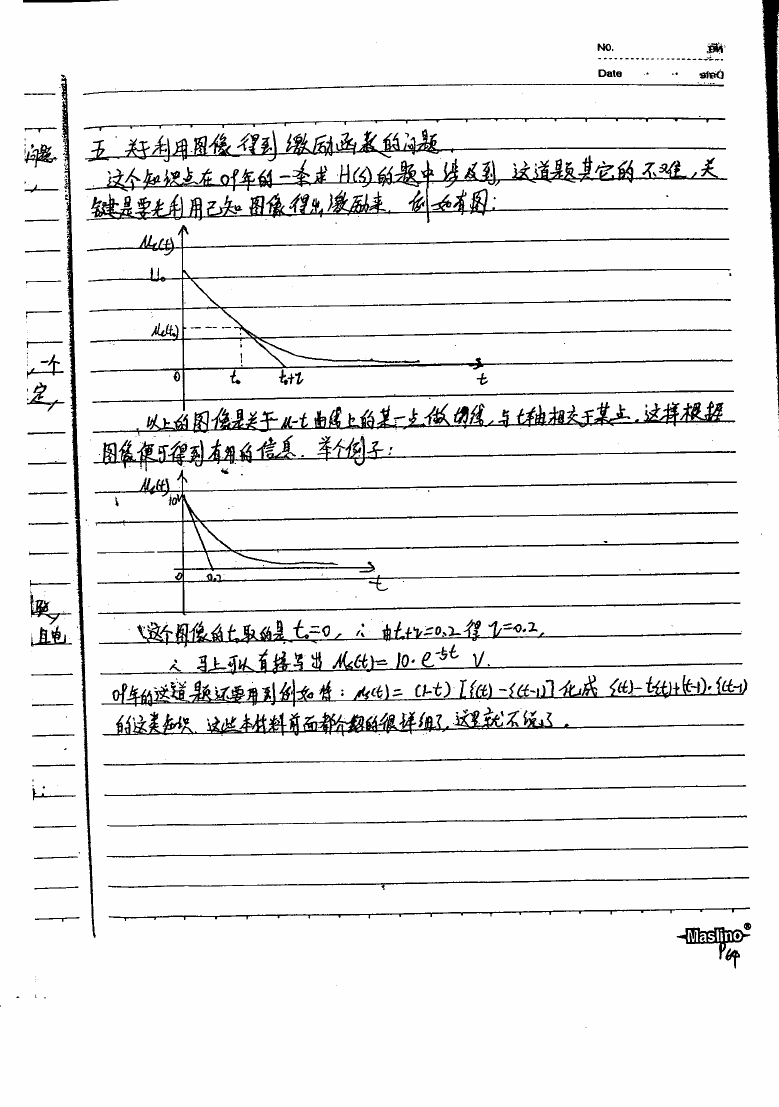 No.
Date
问题
五 关于利用图像得到激励函数的问题.
这个知识点在09年的一条求 H(s)的题中涉及到, 这道题其它的不难, 关
键是要先利用已知图像得出激励来. 例如有图:
Uc(t)
U₀
Uc(t₀)
0 t₀ t₀+τ t
一个
定,
以上的图像是关于u-t曲线上的某一点做切线, 与t轴相交于某点. 这样根据
图像便可得到有用的信息. 举个例子:
Uc(t)
10V
0 0.2 t
这个图像的t₀取的是 t₀=0, ∴ 由t₀+τ=0.2 得 τ=0.2,
且电
∴ 马上可以直接写出 Uc(t)= 10·e^-5t V.
09年的这道题还要用到例如将: Us(t)= (1-t) [ε(t)-ε(t-1)] 化成 ε(t)-tε(t)+(t-1)·ε(t-1)
的这类知识. 这些本材料前面都介绍的很详细了, 这里就不说了.
Maslino®
P64